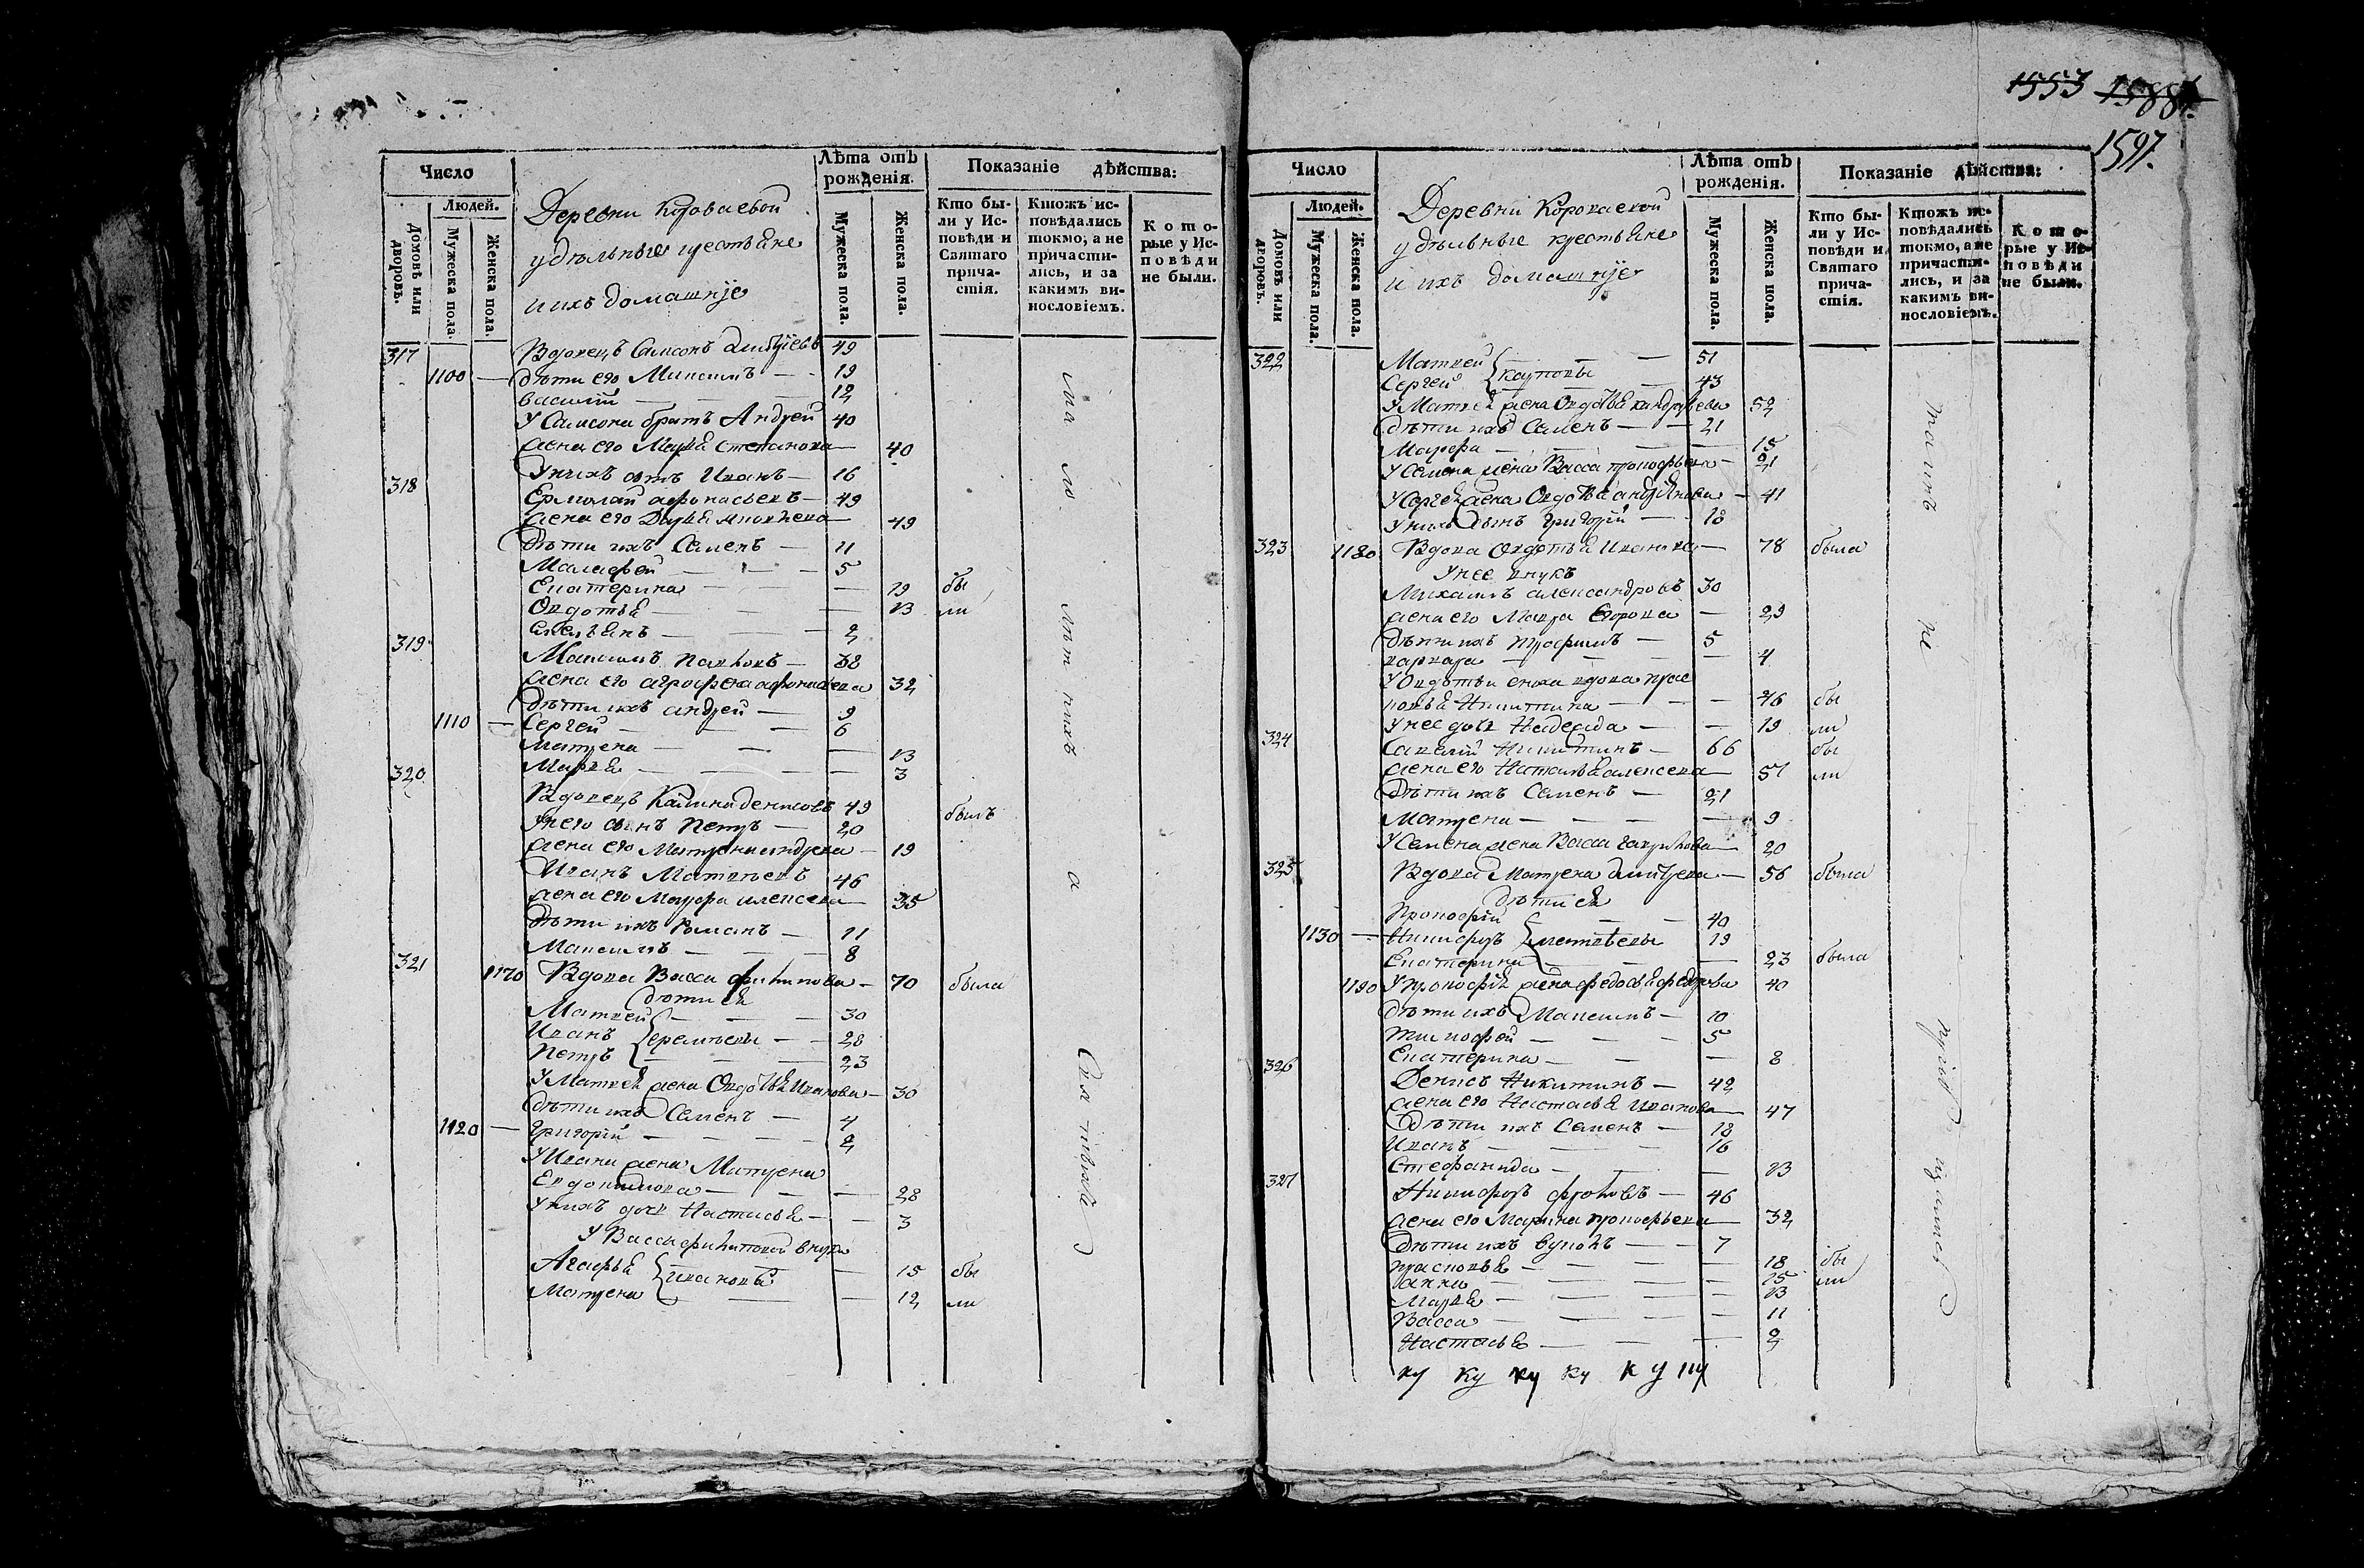 1553 1588
1597.
Число
Людей.
Домовъ или дворовъ.
Мужеска пола.
Женска пола.
Деревни Короваевой
удѣльные крестьяне
и ихъ домашніе
Лѣта отъ рожденія.
Мужеска пола.
Женска пола.
Показаніе дѣйства:
Кто были у Исповѣди и Святаго причастія.
Ктожъ исповѣдались токмо, а не причастились, и за какимъ винословіемъ.
Которые у Исповѣди не были.
317 Вдовецъ Самсонъ 49
1100 — дѣти его Максимъ — 19
василій — 12
У Самсона братъ Андрей 40
жена его Марья степанова — 40
У нихъ сынъ Иванъ — 16
318 Ермолай афонасьевъ — 49
жена его Дарья яковлева — 49
Дѣти ихъ Семенъ — 11
Малафей — 5
Екатерина — 19 бы
Овдотья — 13 ли
емельянъ — 2
319 Максимъ павловъ — 38
жена его аграфена афонасьева 32
Дѣти ихъ андрей — 9
1110 — Сергей — 6
Матрена — 13
Марья — 3
320 Вдовецъ Калина денисовъ 49 былъ
У него сынъ Петръ — 20
жена его Матрена андреева — 19
Иванъ Матвѣевъ 46
жена его Мавра алексеева — 35
дѣти ихъ Романъ — 11
Максимъ — 8
321 1170 Вдова Васса филипова — 70 была
дѣти ея
Матвей — 30
Иванъ { еремѣевы — 28
Петръ — 23
У Матвея жена Овдотья Иванова — 30
Дѣти ихъ Семенъ — 4
1120 — Григорій — 2
У Ивана жена Матрена
Евдокимова — 28
У нихъ дочь Настасья — 3
У Вассы филиповой внуки
Агафья { ивановы — 15 бы
Матрена — 12 ли
Число
Людей.
Домовъ или дворовъ.
Мужеска пола.
Женска пола.
Деревни Короваевой
удѣльные крестьяне
и ихъ домашніе
Лѣта отъ рожденія.
Мужеска пола.
Женска пола.
Показаніе дѣйства:
Кто были у Исповѣди и Святаго причастія.
Ктожъ исповѣдались токмо, а не причастились, и за какимъ винословіемъ.
Которые у Исповѣди не были.
322 Матвей { — 51
Сергей — 43
У Матвея жена Овдотья кандратьева 52
дѣти ихъ Семенъ — 21
Марфа — 15
У Семена жена Васса прокофьева — 21
У Сергея жена Овдотья андреянова — 41
У нихъ сынъ Григорій — 18
323 1180 Вдова Овдотья Иванова — 78 была
У нее внукъ
Михаилъ александровъ 30
жена его Мавра Егорова — 29
Дѣти ихъ трофимъ — 5
варвара — 4
У Овдотьи сноха вдова прас
ковья Никитина — 46 бы
У нее дочь Надежда — 19 ли
324 Савелій Никитинъ — 66 бы
жена его Наталья алексеева — 57 ли
Дѣти ихъ Семенъ — 21
Матрена — 9
У Семена жена Васса гаврилова — 20
325 Вдова Матрена дмитрева — 56 была
дѣти ея
Прокофій — 40
1130 — Никифоръ { матвѣевы 19
Екатерина — 23 была
1190 У прокофья жена федосья федорова 40
дѣти ихъ Максимъ — 10
тимофей — 5
Екатерина — 8
326 Денисъ Никитинъ — 42
жена его Настасья иванова — 47
Дѣти ихъ Семенъ — 18
Иванъ — 16
Стефанида — 13
327 Никифоръ фроловъ — 46
жена его Марина прокофьева — 32
Дѣти ихъ вуколъ — 7
прасковья — 18 бы
анна — 15 ли
Марья — 13
Васса — 11
Настасья — 2
ку ку ку ку к у